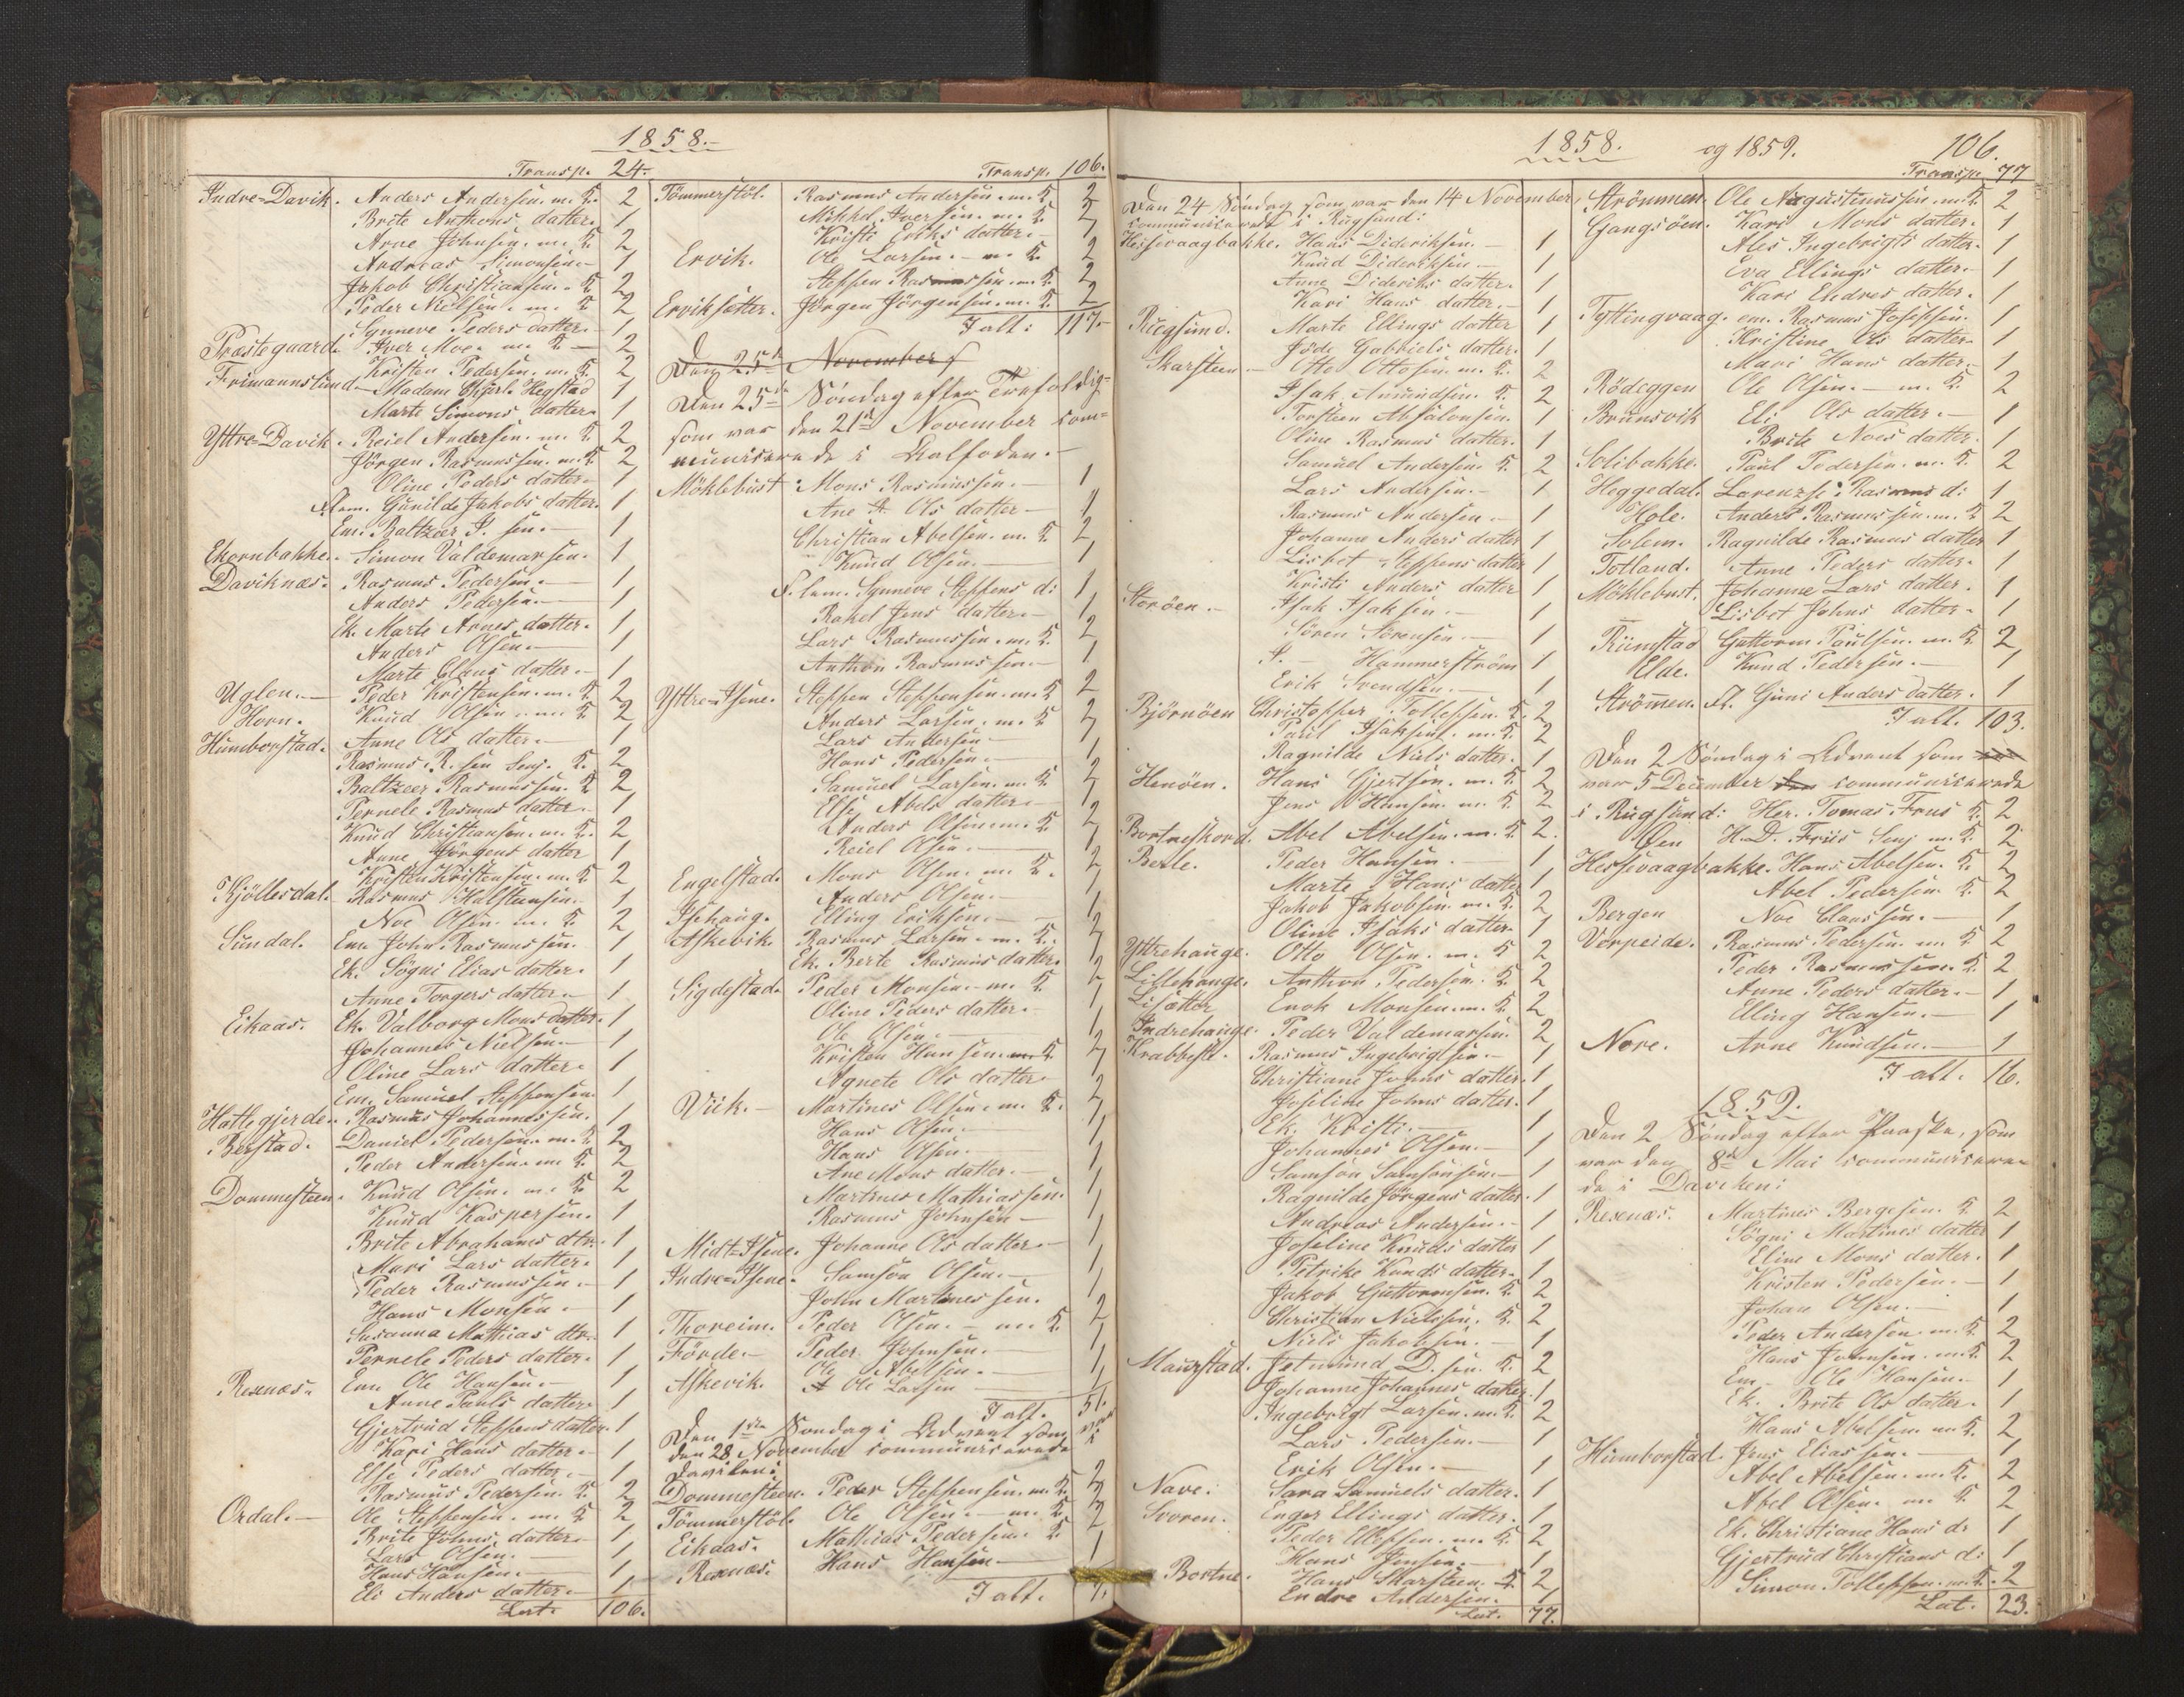 1858.
Transp. 24.
Indre=Davik. Anders Andersen. m. K. 2
Brite Anthons datter. 1
Arne Johnsen. m. K. 2
Andreas Simonsen. 1
Jakob Christiansen. K. 2
Peder Nielsen. m. K 2
Synneve Peders datter. 1
Præsteguard. Iver Moe. m. K. 2
Kristen Pedersen. m. K. 2
Frimannslund. Madam Hegstad 1
Marte Simons datter. 1
Yttre=Davik. Reiel Andersen. m. K. 2
Jörgen Rasmussen. m. K. 2
Oline Peders datter. 1
Gunilde Jakobs datter. 1
Em. Baltzer P. sen. 1
Ekornbakke. Simon Valdemarsen. 1
Daviknæs. Rasmus Pedersen. 1
Anders Pedersen. 1
Ek. Marte Arnes datter. 1
Anders Olsen. 1
Marte datter. 1
Uglen. Peder Kristensen. m. K. 2
Horn. Knud Olsen. m. K 2
Humborstad. Anne Ols datter. 1
Rasmus R. sen Senj. K. 2
Baltzer Rasmussen. K 2
Pernele Rasmus datter. 1
Knud Christiansen. m. K. 2
Anne Jörgens datter 1
Kristen Kristensen. m. K 2
Kjöllesdal. Rasmus Halstensen. 1
Noe Olsen. m. K 2
Sundal. Em. John Rasmussen. 1
Ek. Sögni Elias datter. 1
Anne Torgers datter. 1
Eikaas. Ek. Valborg Mons datter. 1
Johannes Nielsen. 1
Oline Lars datter. 1
Em. Samuel Steffensen. 1
Hattegjerde. Rasmus Johannessen. 1
Berstad. Daniel Pedersen. m. K 2
Peder Andersen. m. K 2
Dommesteen. Knud Olsen. m. K 2
Knud Kaspersen. 1
Brite Abrahams dtr. 1
Mari Lars datter. 1
Peder Rasmussen. 1
Hans Monsen. 1
Susanna Mathias dtr. 1
Pernele Peders datter. 1
Rexnæs. Em. Ole Hansen. 1
Anne Pauls datter. 1
Gjertrud Steffens datter. 1
Kari Hans datter. 1
Else Peders datter. 1
Rasmus Pedersen. K. 2
Ordal. Ole Steffensen. m. K 2
Brite Johns datter. 1
Lars Olsen. 1
Hans Hansen. 1
Eli Anders datter. 1
Lat. 106.
Transp. 106.
Tömmerstöl. Rasmus Andersen. m. K 2
Mikkel Iversen. m. K. 2
Kristi Eriks datter. 1
Ervik. Ole Larsen. m. K. 2
Steffen Rasmussen. m. K 2
Erviksætter. Jörgen Jörgensen. m. K. 2
I alt: 117.
Den 25de November
Den 25de Söndag efter Trefoldig=
som var den 21de November com=
municerede i Aalfoden.
Möklebust. Mons Rasmussen. 1
Ane Ols datter 1
Christian Abelsen. m. K. 2
Knud Olsen. 1
Synneve Steffens d: 1
Rakel Jens datter. 1
Lars Rasmussen. m. K. 2
Anthon Rasmussen. 1
Yttre=Isene. Steffen Steffensen. m. K 2
Anders Larsen. m. K 2
Lars Andersen 1
Hans Pedersen. 1
Samuel Larsen. m. K 2
Else Abels datter. 1
Anders Olsen. m. K 2
Reiel Olsen. 1
Engelstad. Mons Olsen. m. K. 2
Anders Olsen. 1
Isehaug. Elling Eriksen. 1
Askevik. Rasmus Larsen. m. K. 2
Ek. Berte Rasmus datter. 1
Sigdestad. Peder Monsen. m. K 2
Oline Peders datter. 1
Ole Olsen. 1
Kristen Hansen. m. K 2
Agnete Ols datter 1
Viik. Martines Olsen. m. K. 2
Hans Olsen. 1
Hans Olsen. 1
Ane Mons datter. 1
Martines Mathiassen. 1
Rasmus Johnsen 1
Midt=Isene. Johanne Ols datter. 1
Indre=Isene. Samson Olsen. 1
John Martinessen. 1
Thoreim. Peder Olsen. m. K. 2
Förde. Peder Johnsen. 1
Ole Abelsen. 1
Askevik. Ole Larsen 1
I alt. 51.
Den 1ste Söndag i Advent som var
den 28 November communicerede i
Daviken:
Dommesteen. Peder Steffensen. m. K. 2
Tömmerstöl. Ole Olsen. m. K. 2
Eikaas. Mathias Pedersen. K 2
Rexnæs. Hans Hansen. 1
I alt. 7.
1858. og 1859. 106.
Den 24 Söndag som var den 14 November,
communicerede i Rugsund:
Hessevaagbakke. Hans Dideriksen. 1
Knud Dideriksen. 1
Anne Dideriks datter. 1
Kari Hans datter. 1
Rugsund. Marte Ellings datter 1
Jöde Gabriels datter. 1
Skarsteen. Otto Ottosen. m. K. 2
Isak Amundsen. K. 2
Torsteen Absalonsen. 1
Oline Rasmus datter. 1
Samuel Andersen. K. 2
Lars Andersen. 1
Rasmus Andersen. 1
Johanne Anders datter 1
Lisbet Steffens datter 1
Kristi Anders datter 1
Storöen. Isak Isaksen. 1
Sören Sörensen. 1
Hammerström 1
Erik Svendsen. 1
Björnöen Christoffer Tollefsen. K. 2
Paul Isaksen. m. K. 2
Ragnilde Niels datter. 1
Henöen. Hans Gjertsen. m. K. 2
Jens Hansen. m. K. 2
Abel Abelsen. m. K. 2.
Berle. Peder Hansen. 1
Marte Hans datter 1
Jakob Jakobsen. m. K. 2
Oline Isaks datter. 1
Yttrehauge. Otto Olsen. m. K 2
Lillehauge. Anthon Pedersen. K. 2
Lisætter Enok Monsen. m. K. 2
Indrehauge. Peder Valdemarsen. 2
Krabbest. Rasmus Ingebrigtsen. 1
Christiane Johns datter. 1
Joseline Johns datter. 1
Ek. Kristi. 1
Johannes Olsen. 1
Samson Samsonsen. 1
Ragnilde Jörgens datter. 1
Andreas Andersen. 1
Joseline Knuds datter 1
Petrike Knuds datter. 1
Jakob Guttormsen. K. 2
Christian Nielsen. K. 2
Niels Jakobsen. 1
Maurstad. Jetmund D. sen. K. 2
Johanne Johannes datter. 1
Ingebrigt Larsen. m. K. 2
Lars Pedersen. 1
Erik Olsen. 1
Nave. Sara Samuels datter. 1
Svoren. Enger Ellings datter. 1
Peder Ellefsen. m. K. 2
Hans Jensen. 1
Bortne. Hans Skarsteen. K 2
Endre Andersen. 1
Lat. 77.
Transp. 77
Strömmen. Ole Augustinussen. m. K. 2
Gangsöen. Kari Mons datter. 1
Ales Ingebrigts datter. 1
Eva Ellings datter. 1
Kari Endres datter. 1
Tyttingvaag. em. Rasmus Josefsen. 1
Kristine Ols datter. 1
Mari Hans datter. 1
Rödeggen Ole Olsen. m. K. 2
Brunsvik Eli Ols datter. 1
Brite Noes datter. 1
Solibakke. Paul Pedersen. m. K. 2
Heggedal. Lorenze Rasmus d: 1
Hole. Anders Rasmussen. m. K 2
Solem. Ragnilde Rasmus datter 1
Totland. Anne Peders datter. 1
Möklebust. Johanne Lars datter. 1
Lisbet Johns datter. 1
Rimstad Guttorm Paulsen. m. K. 2
Elde. Knud Pedersen. 1
Strömmen. Fl. Guni Anders datter. 1
I alt. 103.
Den 2 Söndag i Advent som
var 5 December communicerede
i Rugsund: Her. Tomas Friis K. 2
Öen H. D. Friis Senj m. K. 2
Hessevaagbakke. Hans Abelsen. K. 2
Abel Pedersen K. 2
Bergen Noe Claussen. 1
Vorpeide. Rasmus Pedersen. m. K 2
Peder Rasmussen. K. 2
Anne Peders datter. 1
Elling Hansen. 1
Nore. Arne Knudsen. 1
I alt. 16.
1859.
Den 2 Söndag efter Paaske, som
var den 8de Mai communicere=
de i Daviken:
Rexnæs. Martines Bergesen. K. 2
Sögni Martines datter 1
Eline Mons datter. 1
Kristen Pedersen. 1
Johan Olsen. 1
Peder Andersen. m. K. 2
Hans Johnsen. m. K. 2
Em. Ole Hansen. 1
Ek. Brite Ols datter. 1
Hans Abelsen. m. K. 2
Humborstad. Jens Eliassen. 1
Abel Abelsen. m. K. 2
Abel Olsen. m. K. 2
Ek. Christiane Hans d: 1
Gjertrud Christians d: 1
Simon Tollefsen. m. K. 2
Lat. 23.